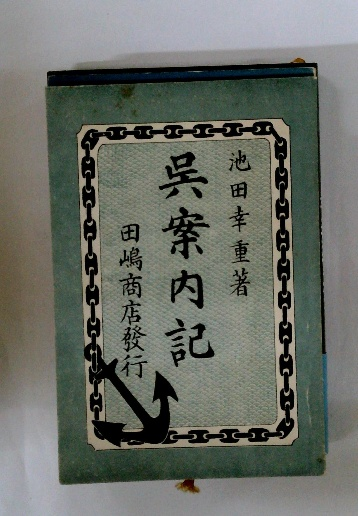 池田幸重著
呉案内記
田嶋商店發行